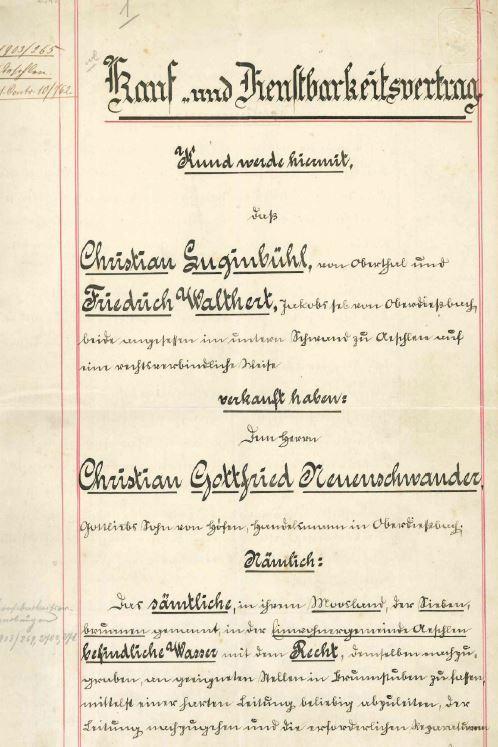 1
1903/265
Aeschlen
Kauf- und Dienstbarkeitsvertrag
Kund werde hiermit,
daß
Christian Luginbühl, von Oberthal und
Friedrich Walthert, Jakobs sel. von Oberdießbach,
beide angesessen im untern Schwand zu Aeschlen auf
eine rechtsverbindliche Weise
verkauft haben:
Dem Herrn
Christian Gottfried Neuenschwander,
Gottliebs Sohn von Höfen, Handelsmann in Oberdießbach;
Nämlich:
Das sämtliche, in ihrem Moosland, der Sieben-
brunnen genannt, in der Einwohnergemeinde Aeschlen
befindliche Wasser mit dem Recht, demselben nachzu-
graben, an geeigneten Stellen in Brunnstuben zu fassen,
mittelst einer harten Leitung beliebig abzuleiten, der
Leitung nachzugehen und die erforderlichen Reparaturen